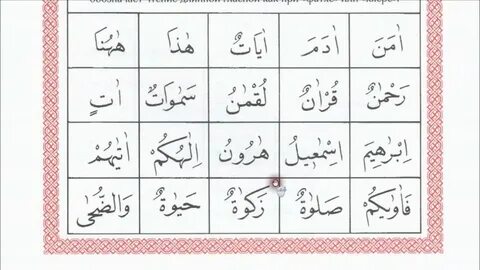 اٰمَنَ اٰدَمَ اٰيَاتٌ هٰذَا هٰهُنَا
رَحْمٰنُ قُرْاٰنٌ لُقْمٰنُ سَمٰوَاتٌ اٰتٍ
اِبْرٰهِيمَ اِسْمٰعِيلُ هٰرُونُ اِلٰهُكُمْ اٰتٰيهُمْ
فَاٰوٰيكُمْ صَلٰوةٌ زَكٰوةٌ حَيٰوةٌ وَالضُّحٰى